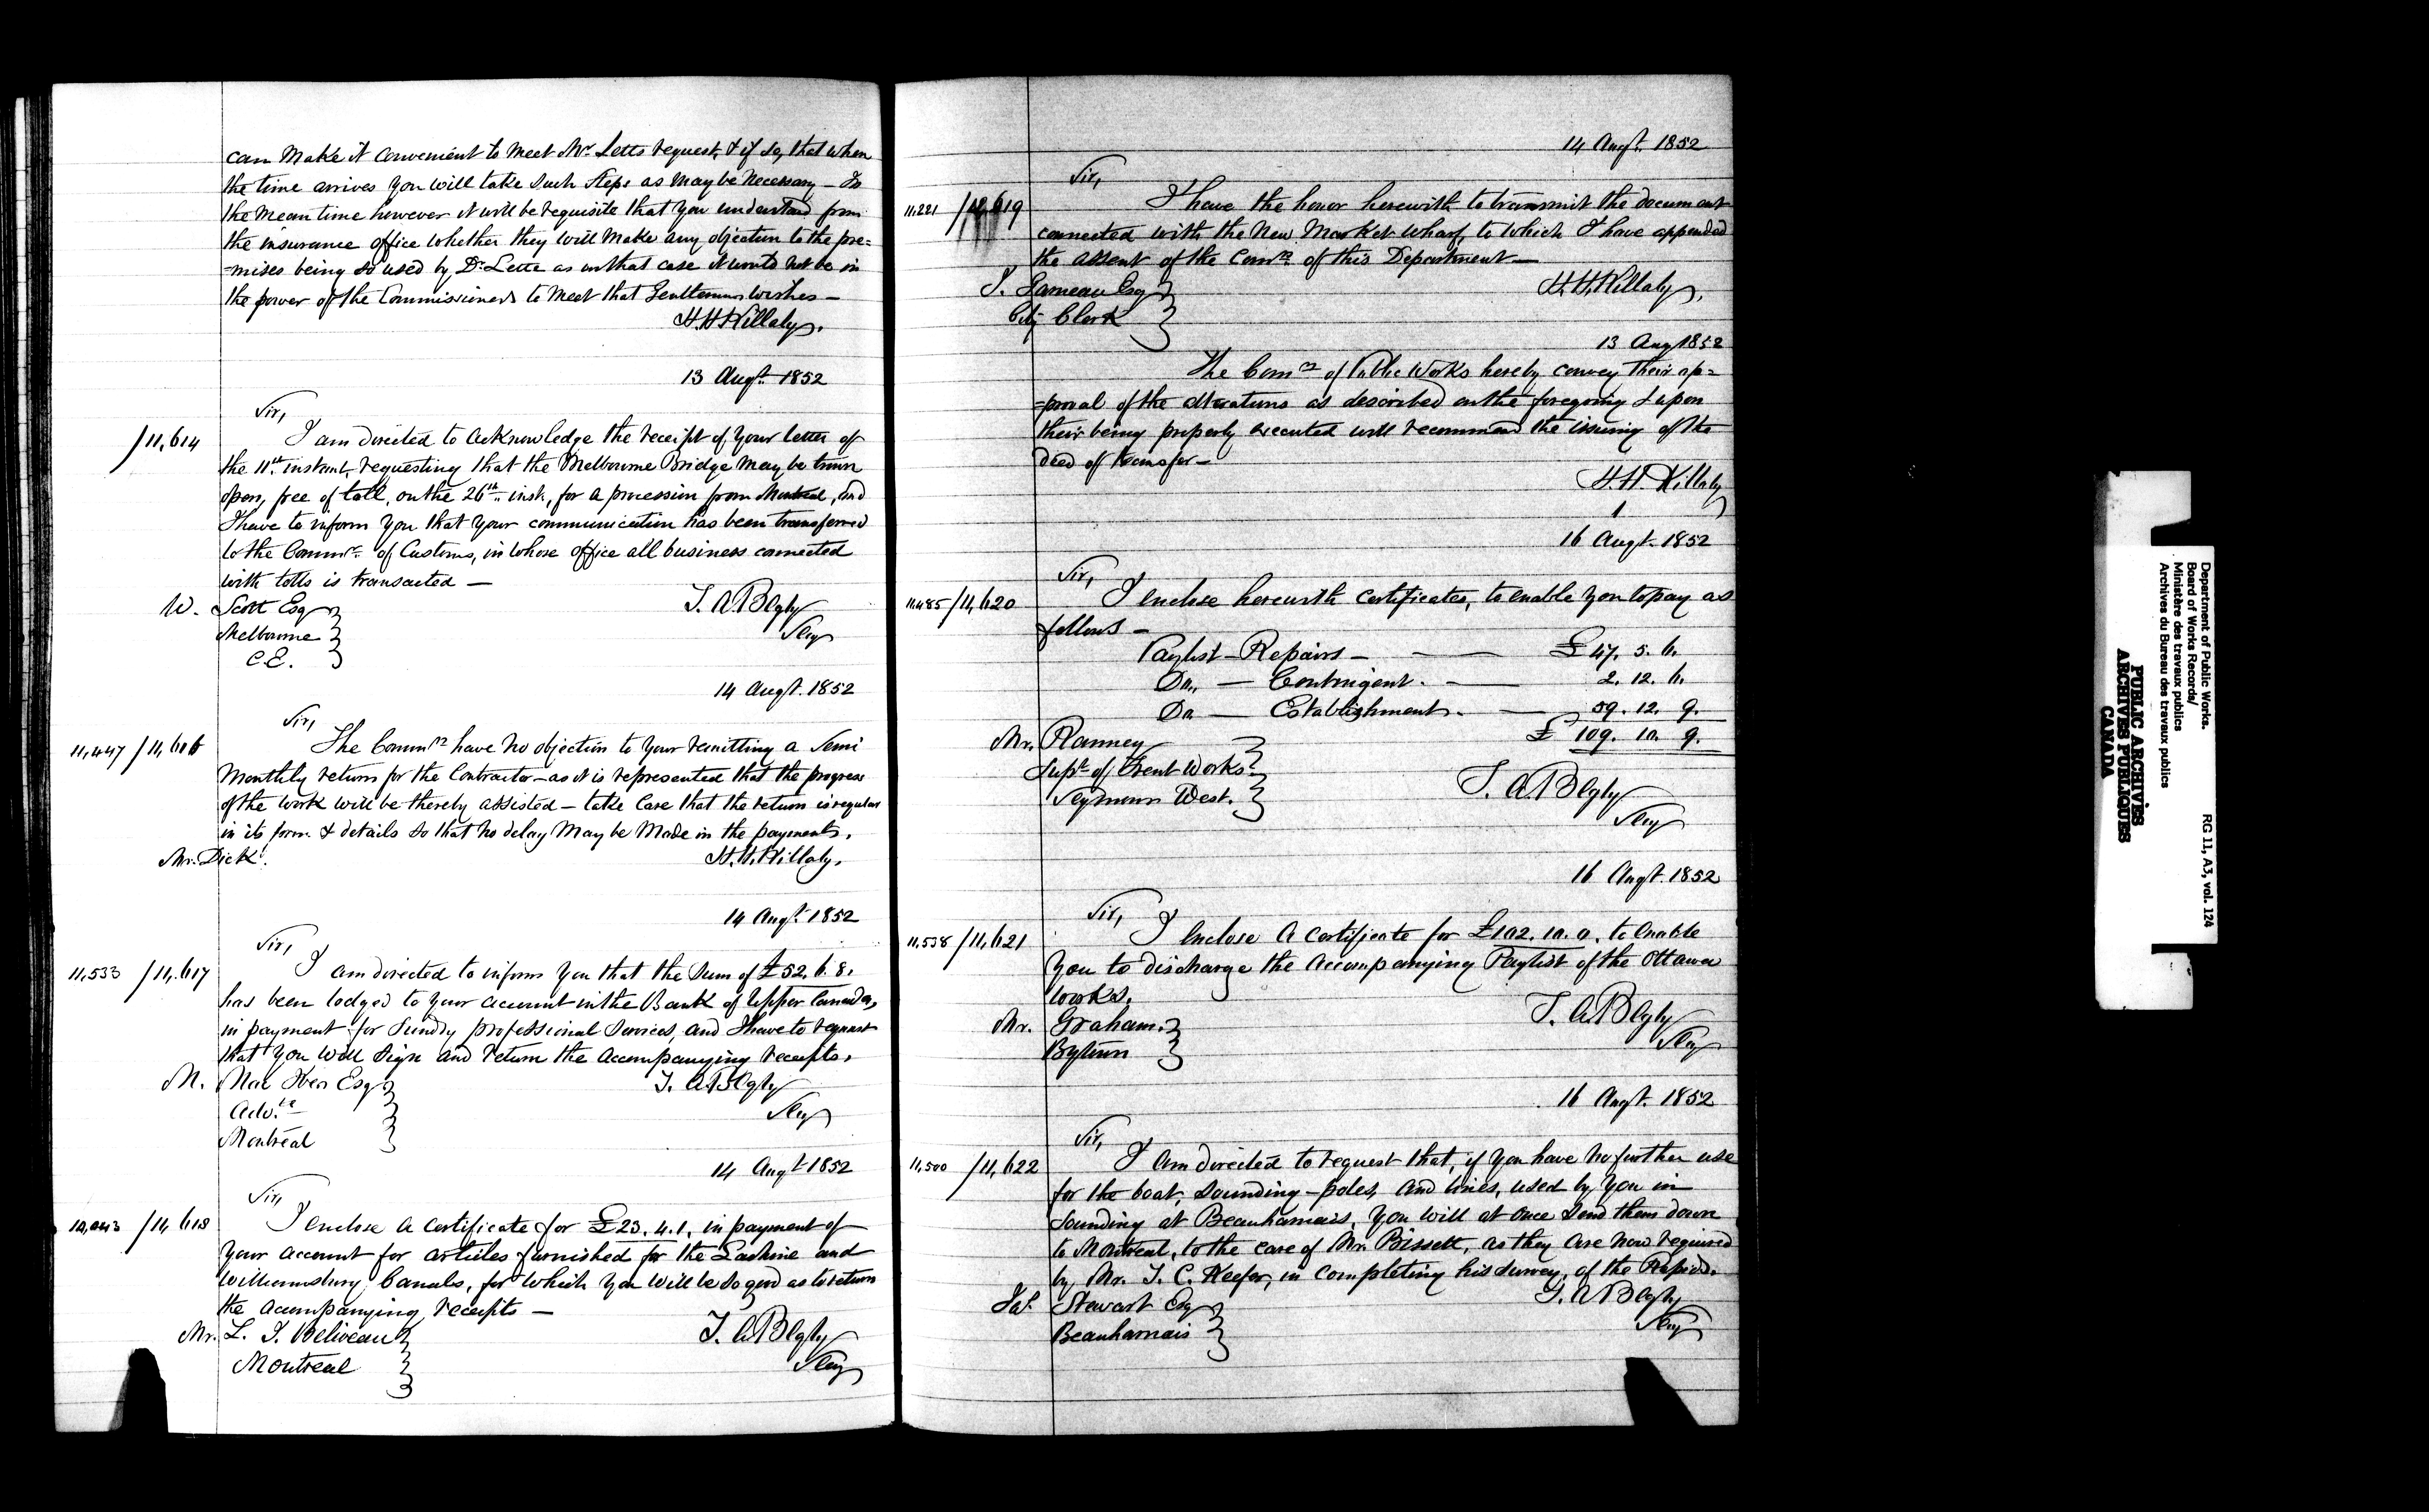 can make it convenient to meet Mr. Letts request, & if so, that when
the time arrives you will take such steps as may be necessary – In
the mean time however it will be requisite that you understand from
the insurance office whether they will make any objection to the pre=
=mises being so used by Dr. Lette as in that case it would not be in
the power of the Commissioners to meet that Gentlemans wishes –
H.H. Killaly.
13 Augt. 1852
Sir,
/11,614
I am directed to acknowledge the receipt of your letter of
the 11th instant, requesting that the Melbourne Bridge may be thrown
open, free of toll, on the 26th inst, for a procession from Montreal, and
I have to inform you that your communication has been transferred
to the Commr. of Customs, in whose office all business connected
with tolls is transacted —
W. Scott Esq
Melbourne
C.E.
T. A. Begly
Secy
14 Augt. 1852
Sir,
11,447 /11,616
The Commrs have no objection to your remitting a Semi
Monthly return for the Contractor – as it is represented that the progress
of the work will be thereby assisted – take care that the return is regular
in its form & details so that no delay may be made in the payments.
Mr. Dick.
H.H. Killaly.
14 Augt. 1852
Sir,
11,533 /11,617
I am directed to inform you that the sum of £52. 6. 8.
has been lodged to your account in the Bank of Upper Canada,
in payment for sundry professional services, and I have to request
that you will sign and return the accompanying receipts.
M. Mac Iver Esq
Advte
Montreal
T. A. Begly
Secy
14 Augt 1852
Sir,
/11,618
I enclose a certificate for £23. 4. 1. in payment of
your account for articles furnished for the Lachine and
Williamsburg Canals, for which you will be so good as to return
the accompanying receipts —
Mr. L. J. Beliveau
Montreal
T. A. Begly
Secy
14 Augt. 1852
Sir,
11,221 /11,619
I have the honor herewith to transmit the document
connected with the New Market Wharf, to which I have appended
the assent of the Comrs. of this Department —
H.H. Killaly.
City Clerk
13 Aug 1852
The Comrs of Public Works hereby convey their ap=
=proval of the alterations as described on the foregoing & upon
their being properly executed will recommend the issuing of the
deed of transfer –
H.H. Killaly
16 Augt. 1852
Sir,
11,485 /11,620
I enclose herewith certificates, to enable you to pay as
follows –
Paylist – Repairs – — £ 47. 5. 6.
Do. — Contingent. — 2. 12. 6.
Do — Establishment. — 59. 12. 9.
£ 109. 10. 9.
Mr. Ranney
Supt. of Trent Works
Seymour West.
T. A. Begly
Secy
16 Augt. 1852
Sir,
11,538 /11,621
I enclose a certificate for £102. 10. 0. to enable
you to discharge the accompanying Paylist of the Ottawa
works.
Mr. Graham.
Bytown
T. A. Begly
Secy
16 Augt. 1852
Sir,
11,500 /11,622
I am directed to request that, if you have no further use
for the boat, sounding-poles, and lines, used by you in
sounding at Beauharnais, you will at once send them down
to Montreal, to the care of Mr. Bissett, as they are now required
by Mr. T. C. Keefer, in completing his survey, of the Rapids.
Jas. Stewart Esq
Beauharnais
T. A. Begly
Secy
Department of Public Works.
Board of Works Records/
Ministère des travaux publics
Archives du Bureau des travaux publics
RG 11, A3, vol. 124
PUBLIC ARCHIVES
ARCHIVES PUBLIQUES
CANADA